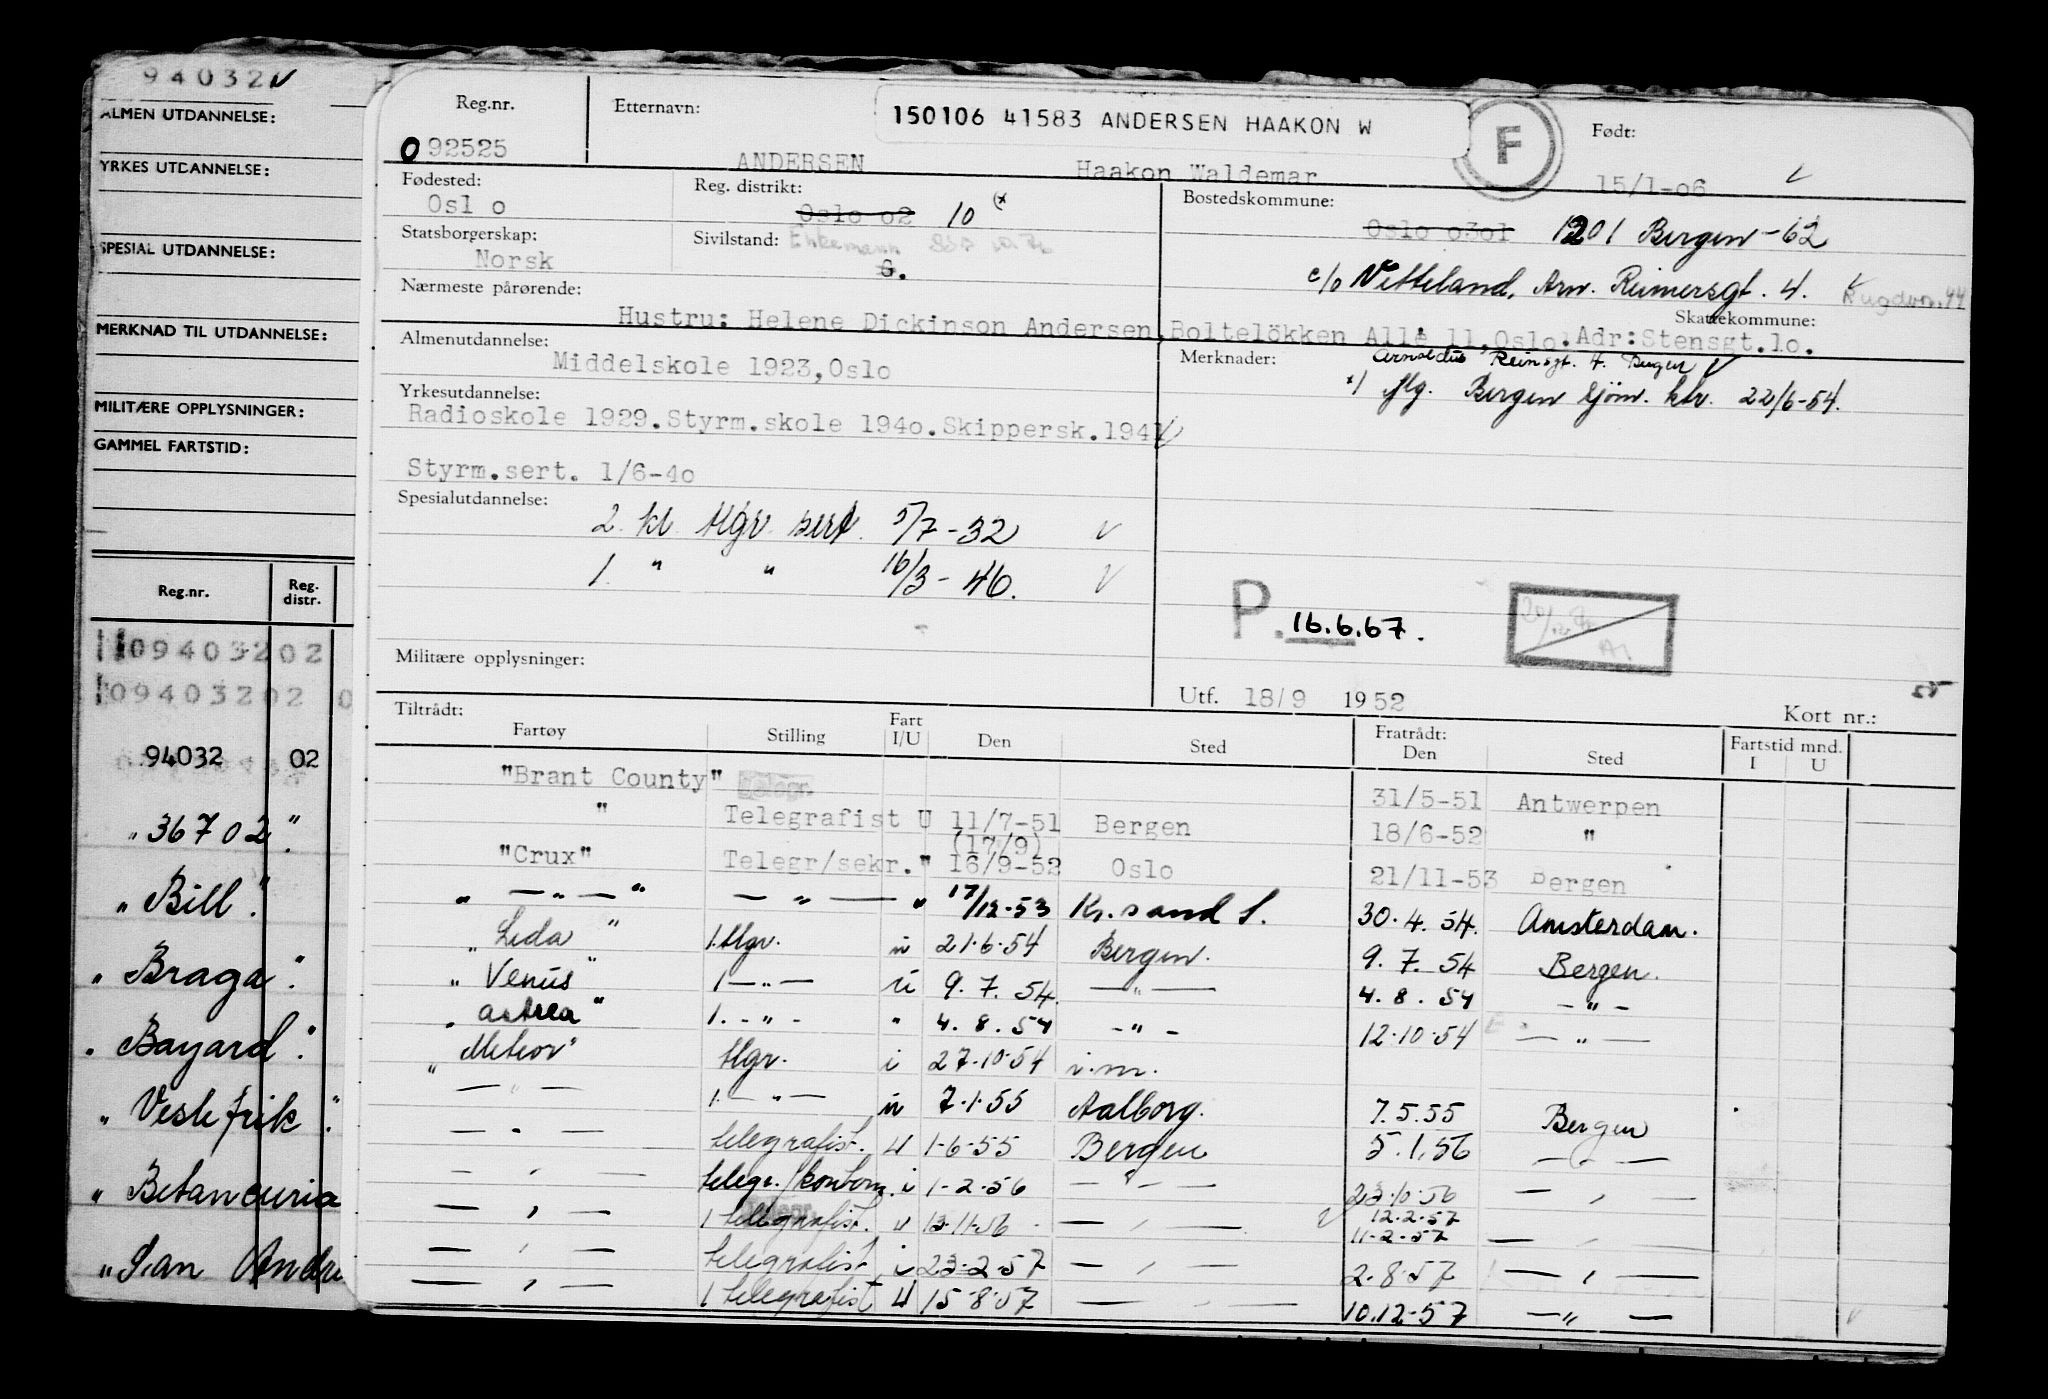 94032
ALMEN UTDANNELSE:
YRKES UTDANNELSE:
SPESIAL UTDANNELSE:
MERKNAD TIL UTDANNELSE:
MILITÆRE OPPLYSNINGER:
GAMMEL FARTSTID:
Reg.nr. Reg. distr.
09403202
09403202 0
94032 02
" 36702 "
" Bill "
" Braga "
" Bayard "
" Vesle frik "
" Betancuria
" San Andre
Reg.nr. Etternavn: 150106 41583 ANDERSEN HAAKON W F Født:
092525 ANDERSEN Haakon Waldemar 15/1-06
Fødested: Reg. distrikt: Bostedskommune:
Osl o Oslo o2 10 (* Oslo o3o1 1201 Bergen-62
Statsborgerskap: Sivilstand: Enkemann
Norsk G. c/o Vetteland, Arn. Reimersgt. 4.
Nærmeste pårørende: Skattekommune:
Hustru: Helene Dickinson Andersen, Boltelökken Allè 11, Oslo. Adr: Stensgt.1o.
Almenutdannelse: Merknader: Arnoldus Reimsgt. 4. Bergen
Middelskole 1923, Oslo
*/ flg. Bergen sjöm. ktr. 22/6-54.
Yrkesutdannelse:
Radioskole 1929. Styrm.skole 194o. Skippersk.1941
Styrm.sert. 1/6-4o
Spesialutdannelse:
2. kl. tlgr. sert. 5/7-32
1. " " 16/3-46.
P. 16.6.67.
Militære opplysninger:
Utf. 18/9 1952
Kort nr.:
Tiltrådt: Fratrådt: Fartstid mnd.
Fartøy Stilling Fart I/U Den Sted Den Sted I U
"Brant County" Telegr. 31/5-51 Antwerpen
" Telegrafist U 11/7-51 Bergen 18/6-52 "
(17/9)
"Crux" Telegr/sekr. " 16/9-52 Oslo 21/11-53 Bergen
" — " — " — " — " 17/12-53 Kr.sand S. 30.4.54. Amsterdam.
" Leda " 1.tlgr. u 21.6.54 Bergen. 9.7.54 Bergen.
" Venus " 1 — " — u 9.7.54. — " — 4.8.54 — " —
" Astrea " 1. - " - " 4.8.54 - " - 12.10.54 — " —
" Meteor " tlgr. i 27.10.54 i.m.
— " — 1. — " — u 7.1.55 Aalborg. 7.5.55 Bergen
— " — telegrafist. U 1-6-55 Bergen 5.1.56 — " —
— " — telegr./kontorm. i 1-2-56 — " — 23.10.56 — " —
— " — 1 telegrafist. u 13.11.56 — " — 12.2.57
11-2-57 — " —
— " — telegrafist i 23-2-57 — " — 2.8.57 — " —
— " — 1 telegrafist U 15-8-57 — " — 10.12-57 — " —